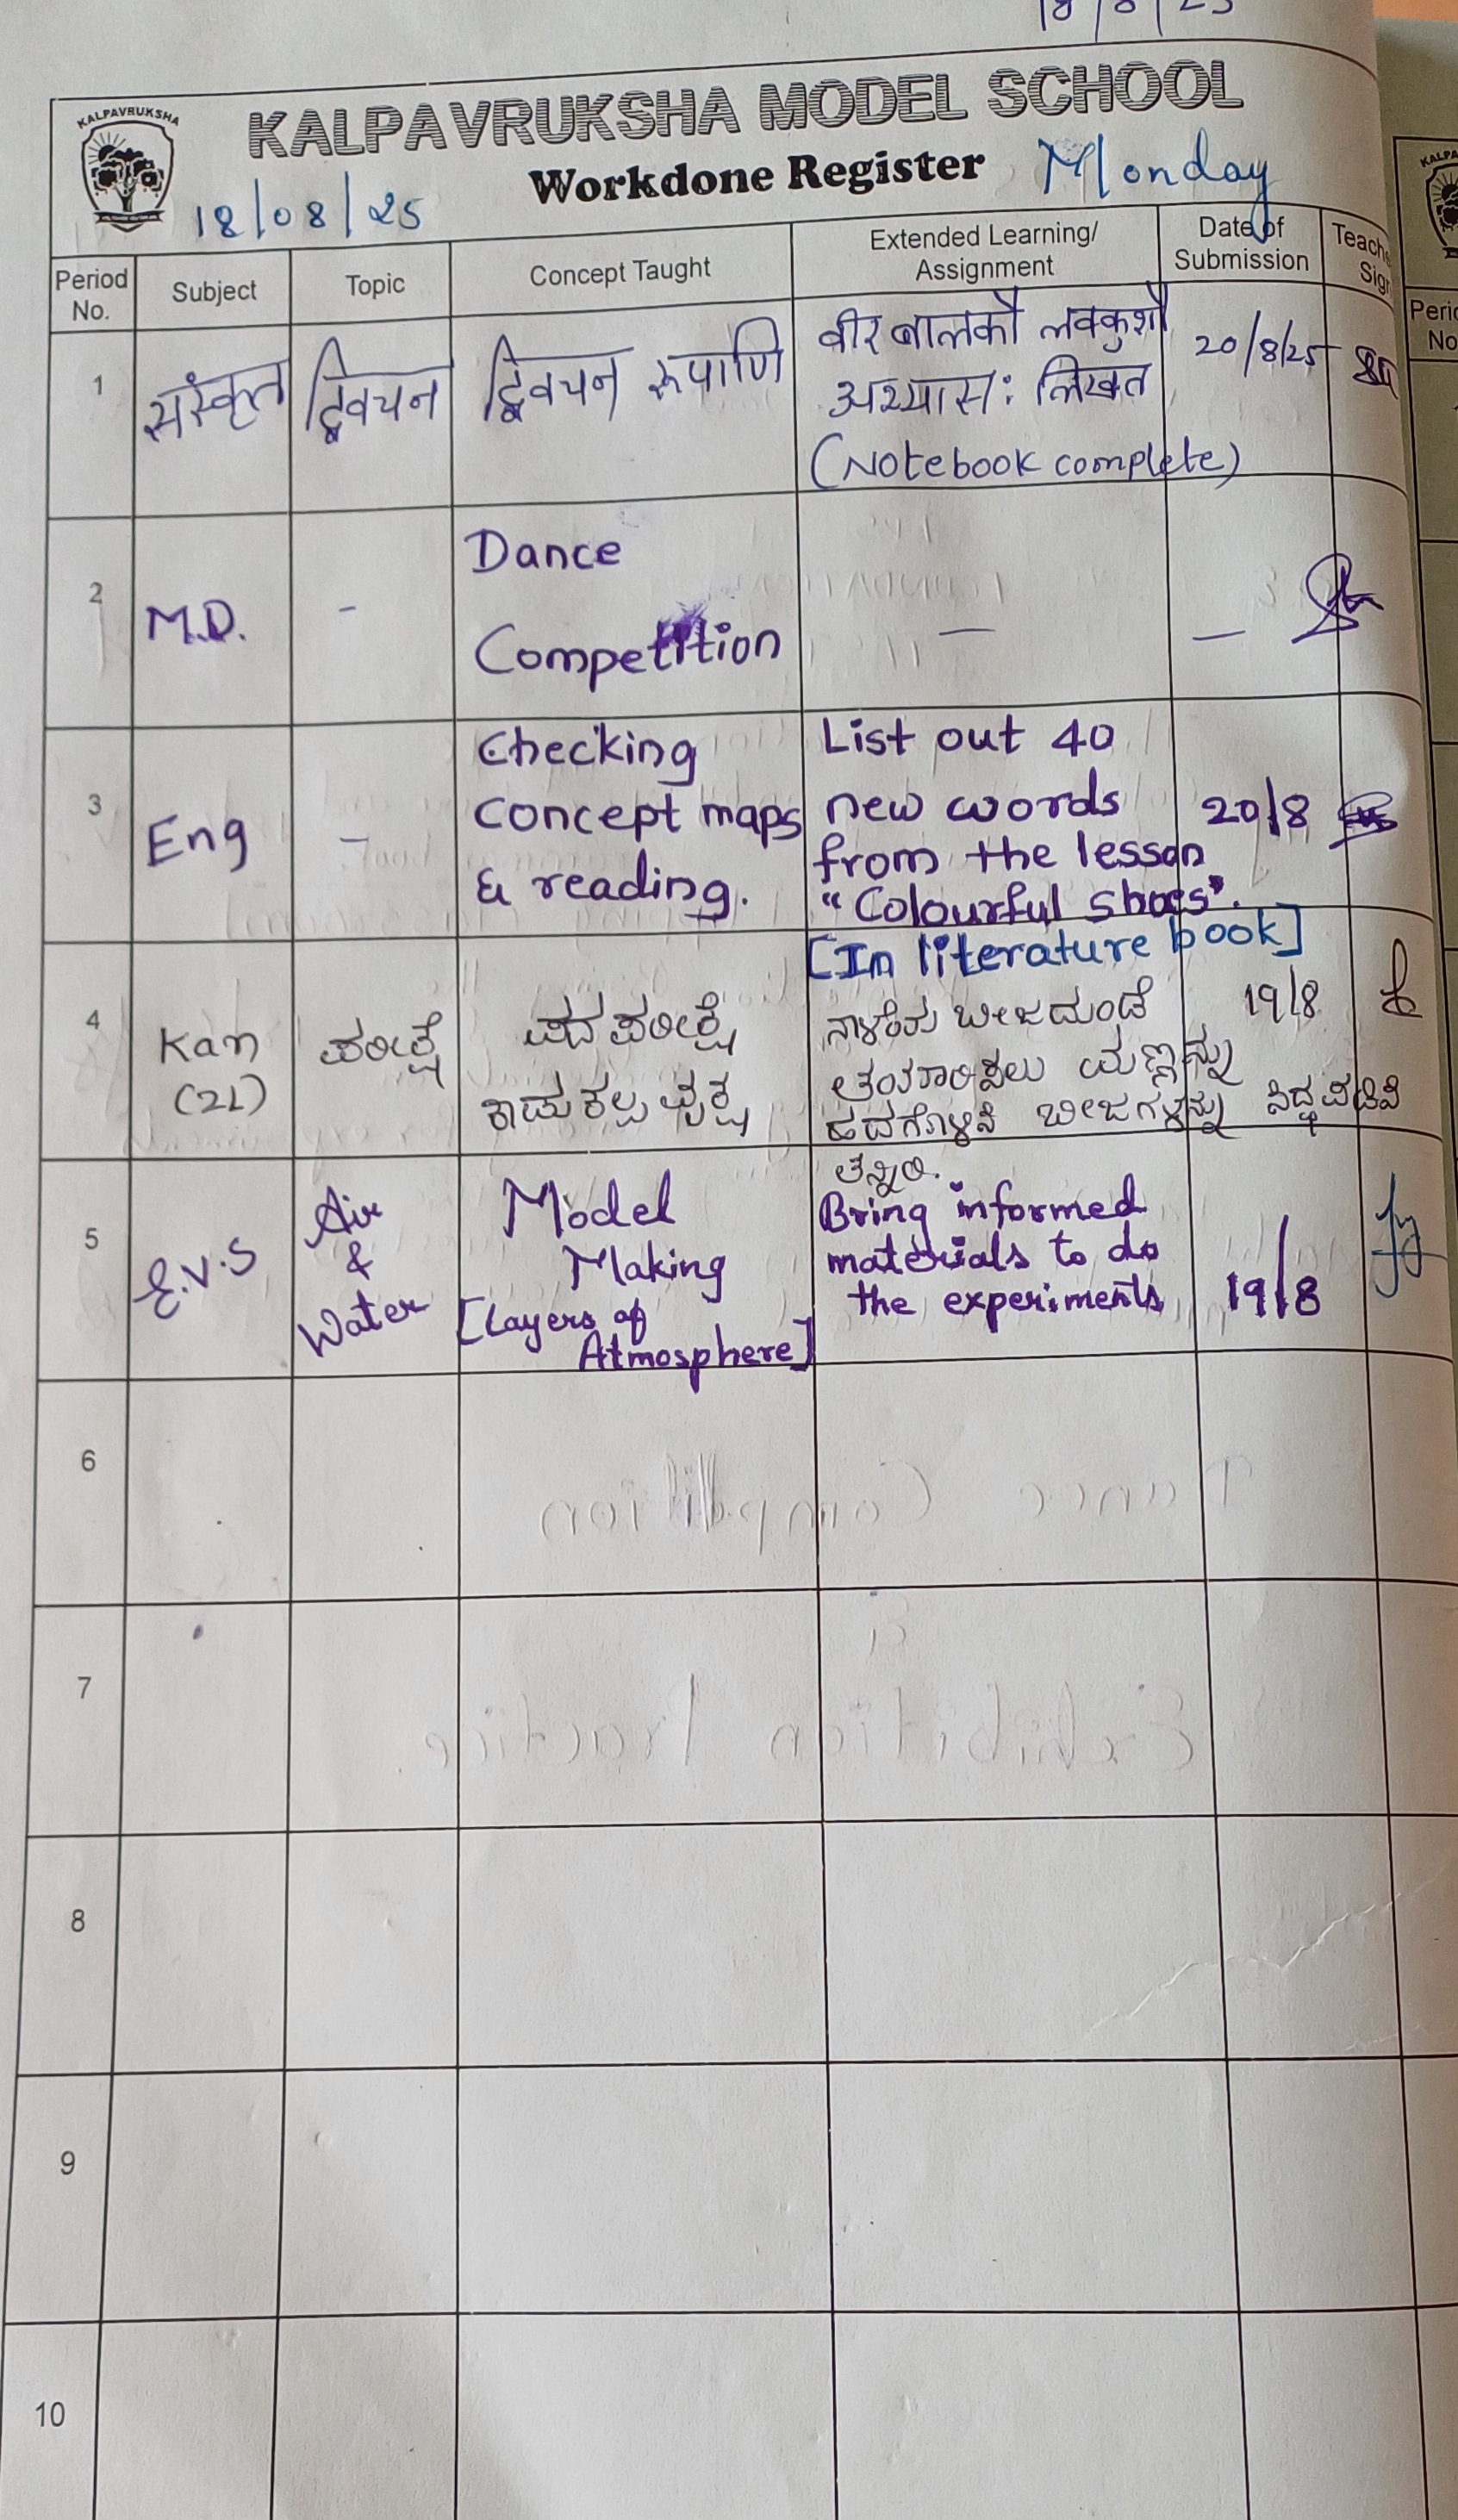 18/8/25
KALPAVRUKSHA
KALPAVRUKSHA MODEL SCHOOL
Workdone Register Monday
18/08/25
Period No. Subject Topic Concept Taught Extended Learning/ Assignment Date of Submission
1 संस्कृत द्विवचन द्विवचन रूपाणि वीर बालकौ लवकुशौ 20/8/25
अभ्यासः लिखत
(Notebook complete)
2 M.D. - Dance — —
Competition
3 Eng - Checking List out 40
concept maps new words 20/8
& reading. from the lesson
"Colourful shoes".
[In literature book]
4 Kan ಪರೀಕ್ಷೆ ಪದ ಪರೀಕ್ಷೆ 19/8
(2L)
ಬೀಜಗಳನ್ನು
5 E.V.S Air & Water Model Bring informed 19/8
Making materials to do
[Layers of the experiments
Atmosphere]
6
7
8
9
10